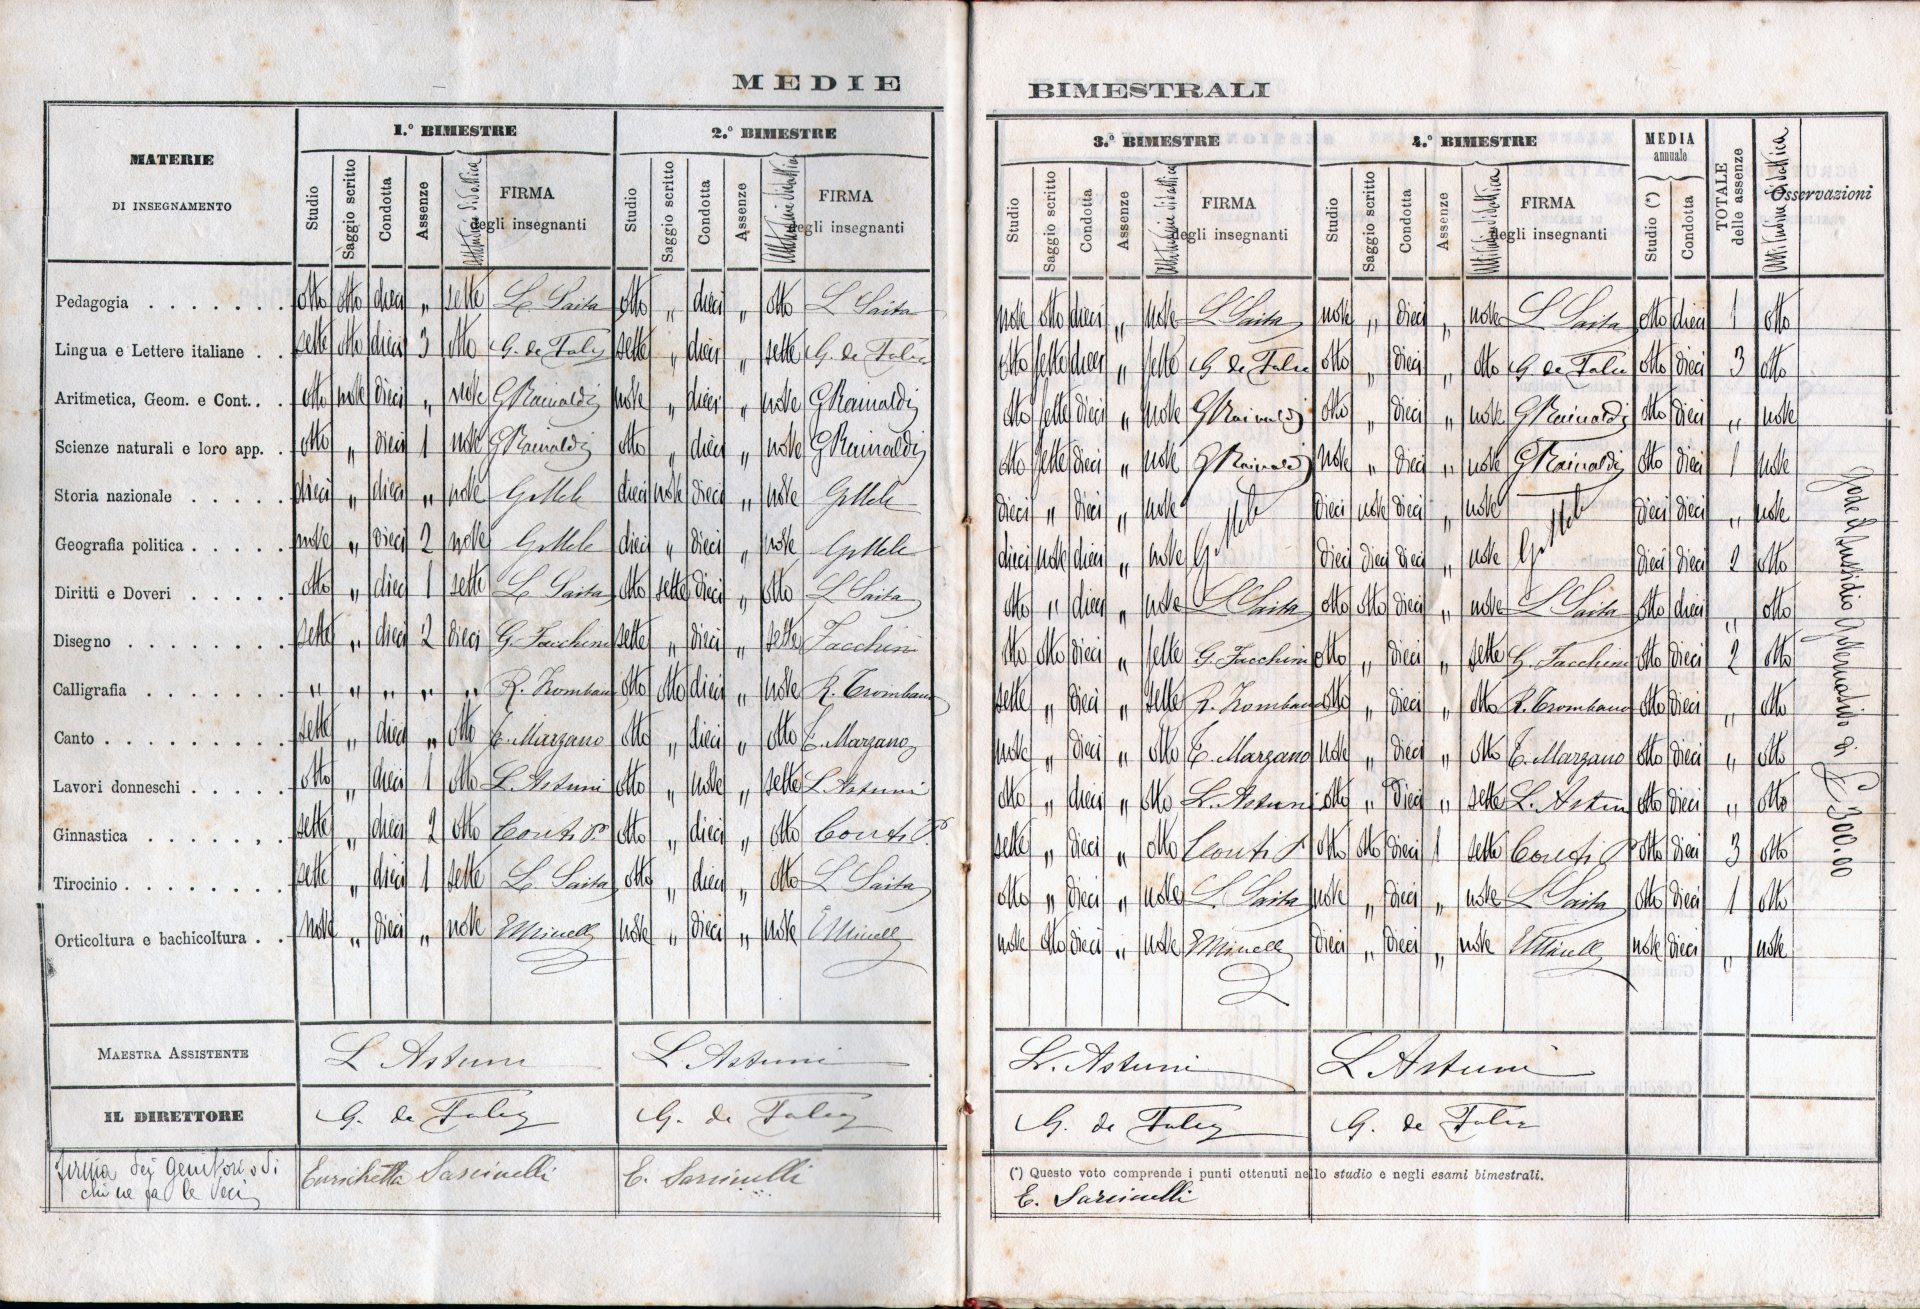 MEDIE BIMESTRALI
MATERIE DI INSEGNAMENTO | 1.º BIMESTRE | 2.º BIMESTRE | 3.º BIMESTRE | 4.º BIMESTRE | MEDIA annuale | TOTALE delle assenze | Attitudine didattica | Osservazioni
Studio | Saggio scritto | Condotta | Assenze | Attitudine didattica | FIRMA degli insegnanti | Studio | Saggio scritto | Condotta | Assenze | Attitudine didattica | FIRMA degli insegnanti | Studio | Saggio scritto | Condotta | Assenze | Attitudine didattica | FIRMA degli insegnanti | Studio | Saggio scritto | Condotta | Assenze | Attitudine didattica | FIRMA degli insegnanti | Studio (*) | Condotta
Pedagogia . . . . . . . | otto | otto | dieci | „ | sette | L. Saita | otto | „ | dieci | „ | otto | L Saita | nove | otto | dieci | „ | nove | L Saita | nove | „ | dieci | „ | nove | L Saita | otto | dieci | 1 | otto
Lingua e Lettere italiane . . | sette | otto | dieci | 3 | otto | G. de Falco | sette | „ | dieci | „ | sette | G. de Falco | otto | sette | dieci | „ | sette | G. de Falco | otto | „ | dieci | „ | otto | G. de Falco | otto | dieci | 3 | otto
Aritmetica, Geom. e Cont. . . | otto | nove | dieci | „ | nove | G Rainaldi | nove | „ | dieci | „ | nove | G Rainaldi | otto | sette | dieci | „ | nove | G Rainaldi | otto | „ | dieci | „ | nove | G Rainaldi | otto | dieci | „ | nove
Scienze naturali e loro app. . | otto | „ | dieci | 1 | nove | G Rainaldi | otto | „ | dieci | „ | nove | G Rainaldi | otto | sette | dieci | „ | nove | G Rainaldi | nove | „ | dieci | „ | nove | G Rainaldi | otto | dieci | 1 | nove
Storia nazionale . . . . . | dieci | „ | dieci | „ | nove | G Mele | dieci | nove | dieci | „ | nove | G Mele | dieci | „ | dieci | „ | nove | G Mele | dieci | nove | dieci | „ | nove | G Mele | dieci | dieci | „ | nove
Geografia politica . . . . . | nove | „ | dieci | 2 | nove | G Mele | dieci | „ | dieci | „ | nove | G Mele | dieci | nove | dieci | „ | nove | dieci | dieci | dieci | „ | nove | dieci | dieci | 2 | otto
Diritti e Doveri . . . . . | otto | „ | dieci | 1 | sette | L Saita | otto | sette | dieci | „ | otto | L Saita | otto | „ | dieci | „ | nove | L Saita | otto | otto | dieci | „ | nove | L Saita | otto | dieci | „ | otto
Disegno . . . . . . . . | sette | „ | dieci | 2 | dieci | G. Facchini | sette | „ | dieci | „ | sette | Facchini | otto | otto | dieci | „ | sette | G. Facchini | otto | „ | dieci | „ | sette | G. Facchini | otto | dieci | 2 | otto
Calligrafia . . . . . . . | „ | „ | „ | „ | „ | R. Trombano | otto | otto | dieci | „ | nove | R. Trombano | sette | „ | dieci | „ | sette | R. Trombano | otto | „ | dieci | „ | otto | R. Trombano | otto | dieci | „ | otto
Canto . . . . . . . . . | sette | „ | dieci | „ | otto | E. Marzano | otto | „ | dieci | „ | otto | E. Marzano | nove | „ | dieci | „ | otto | E. Marzano | nove | „ | dieci | „ | otto | E. Marzano | otto | dieci | „ | otto
Lavori donneschi . . . . . | otto | „ | dieci | 1 | otto | L. Astuni | otto | „ | nove | „ | sette | L. Astuni | otto | „ | dieci | „ | otto | L. Astuni | otto | „ | dieci | „ | sette | L. Astuni | otto | dieci | „ | otto
Ginnastica . . . . . . . | sette | „ | dieci | 2 | otto | Conti P. | otto | „ | dieci | „ | otto | Conti P. | sette | „ | dieci | „ | otto | Conti P | otto | otto | dieci | 1 | sette | Conti P | otto | dieci | 3 | otto
Tirocinio . . . . . . . . | sette | „ | dieci | 1 | sette | L. Saita | otto | „ | dieci | „ | otto | L Saita | otto | „ | dieci | „ | nove | L. Saita | nove | „ | dieci | „ | nove | L Saita | otto | dieci | 1 | otto
Orticoltura e bachicoltura . . | nove | „ | dieci | „ | nove | E Minelli | nove | „ | dieci | „ | nove | E Minelli | nove | otto | dieci | „ | nove | E Minelli | dieci | „ | dieci | „ | nove | E Minelli | nove | dieci | „ | nove
Gode il sussidio Governativo di £ 300.00
MAESTRA ASSISTENTE | L Astuni | L Astuni | L. Astuni | L Astuni
IL DIRETTORE | G. de Falco | G. de Falco | G. de Falco | G. de Falco
firma dei genitori o di chi ne fa le veci | Enrichetta Sarcinelli | E. Sarcinelli
(*) Questo voto comprende i punti ottenuti nello studio e negli esami bimestrali.
E. Sarcinelli